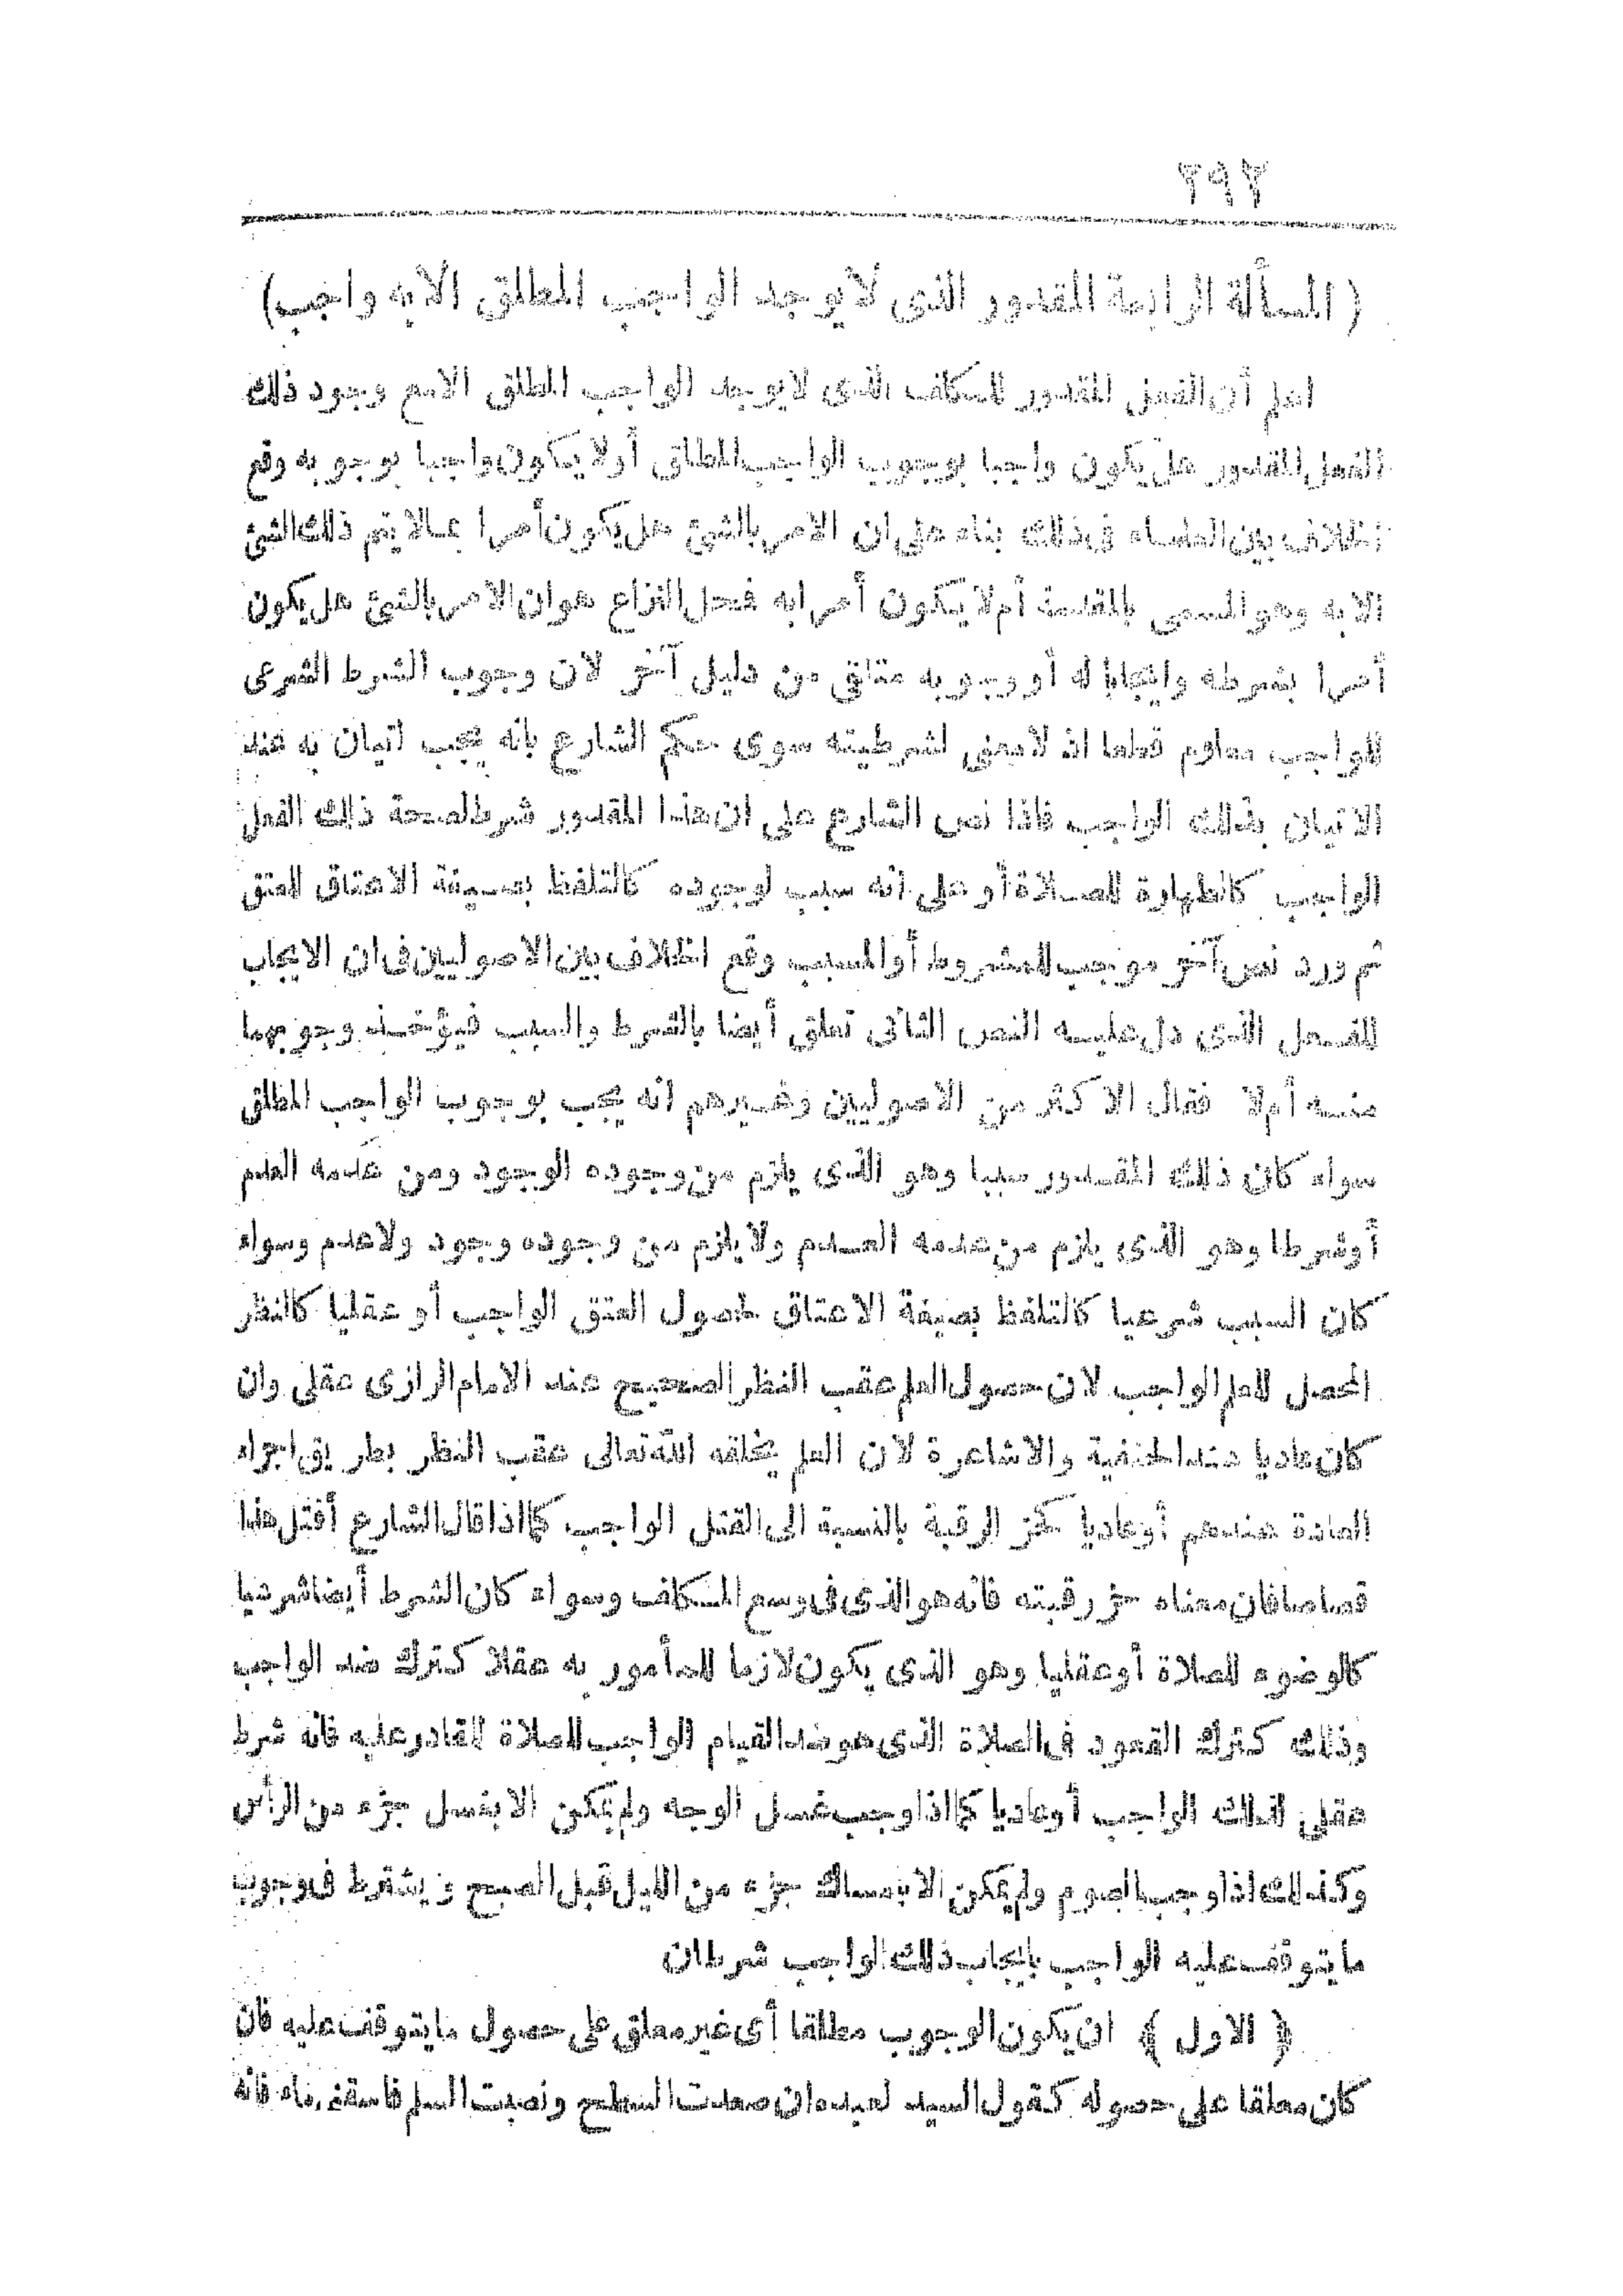 ٢٩٢
( المسألة الرابعة المقدور الذى لا يوجد الواجب المطلق الا به واجب)
اعلم أن الفعل المقدور للمكلف الذى لا يوجد الواجب المطلق الا مع وجود ذلك
الفعل المقدور هل يكون واجبا بوجوب الواجب المطلق أولا يكون واجبا بوجوبه وقع
الخلاف بين العلماء فى ذلك بناء على ان الامر بالشئ هل يكون أمرا بما لا يتم ذلك الشئ
الا به وهو المسمى بالمقدمة أم لا يكون أمرا به فمحل النزاع هو ان الامر بالشئ هل يكون
أمرا بشرطه وايجابا له أو وجوبه متلقى من دليل آخر لان وجوب الشرط الشرعى
للواجب معلوم قطعا اذ لا معنى لشرطيته سوى حكم الشارع بانه يجب اتيان به عند
الاتيان بذلك الواجب فاذا نص الشارع على ان هذا المقدور شرط لصحة ذلك الفعل
الواجب كالطهارة للصلاة أو على انه سبب لوجوده كالتلفظ بصيغة الاعتاق للعتق
ثم ورد نص آخر موجب للمشروط أو المسبب وقع الخلاف بين الاصوليين فى ان الايجاب
للفعل الذى دل عليه النص الثانى تعلق أيضا بالشرط والسبب فيؤخذ وجوبهما
منه أم لا فقال الاكثر من الاصوليين وغيرهم انه يجب بوجوب الواجب المطلق
سواء كان ذلك المقدور سببا وهو الذى يلزم من وجوده الوجود ومن عدمه العدم
أو شرطا وهو الذى يلزم من عدمه العدم ولا يلزم من وجوده وجود ولا عدم وسواء
كان السبب شرعيا كالتلفظ بصيغة الاعتاق لحصول العتق الواجب أو عقليا كالنظر
المحصل للعلم الواجب لان حصول العلم عقب النظر الصحيح عند الامام الرازى عقلى وان
كان عاديا عند الحنفية والاشاعرة لان العلم يخلقه الله تعالى عقب النظر بطريق اجراء
العادة عندهم أو عاديا كحز الرقبة بالنسبة الى القتل الواجب كما اذا قال الشارع أقتل هذا
قصاصا فان معناه حز رقبته فانه هو الذى فى وسع المكلف وسواء كان الشرط أيضا شرعيا
كالوضوء للصلاة أو عقليا وهو الذى يكون لازما للمأمور به عقلا كترك ضد الواجب
وذلك كترك القعود فى الصلاة الذى هو ضد القيام الواجب للصلاة للقادر عليه فانه شرط
عقلى لذلك الواجب أو عاديا كما اذا وجب غسل الوجه ولم يمكن الا بغسل جزء من الرأس
وكذلك اذا وجب الصوم ولم يمكن الا بامساك جزء من الليل قبل الصبح ويشترط فى وجوب
ما يتوقف عليه الواجب بايجاب ذلك الواجب شرطان
﴿ الاول ﴾ ان يكون الوجوب مطلقا أى غير معلق على حصول ما يتوقف عليه فان
كان معلقا على حصوله كقول السيد لعبده ان صعدت السطح ونصبت السلم فاسقنى ماء فانه